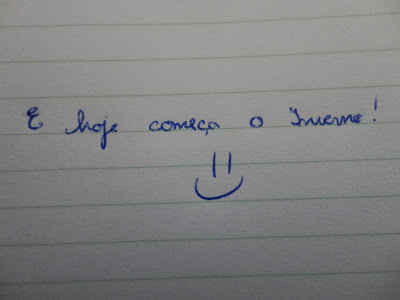 E hoje começa o Inverno!